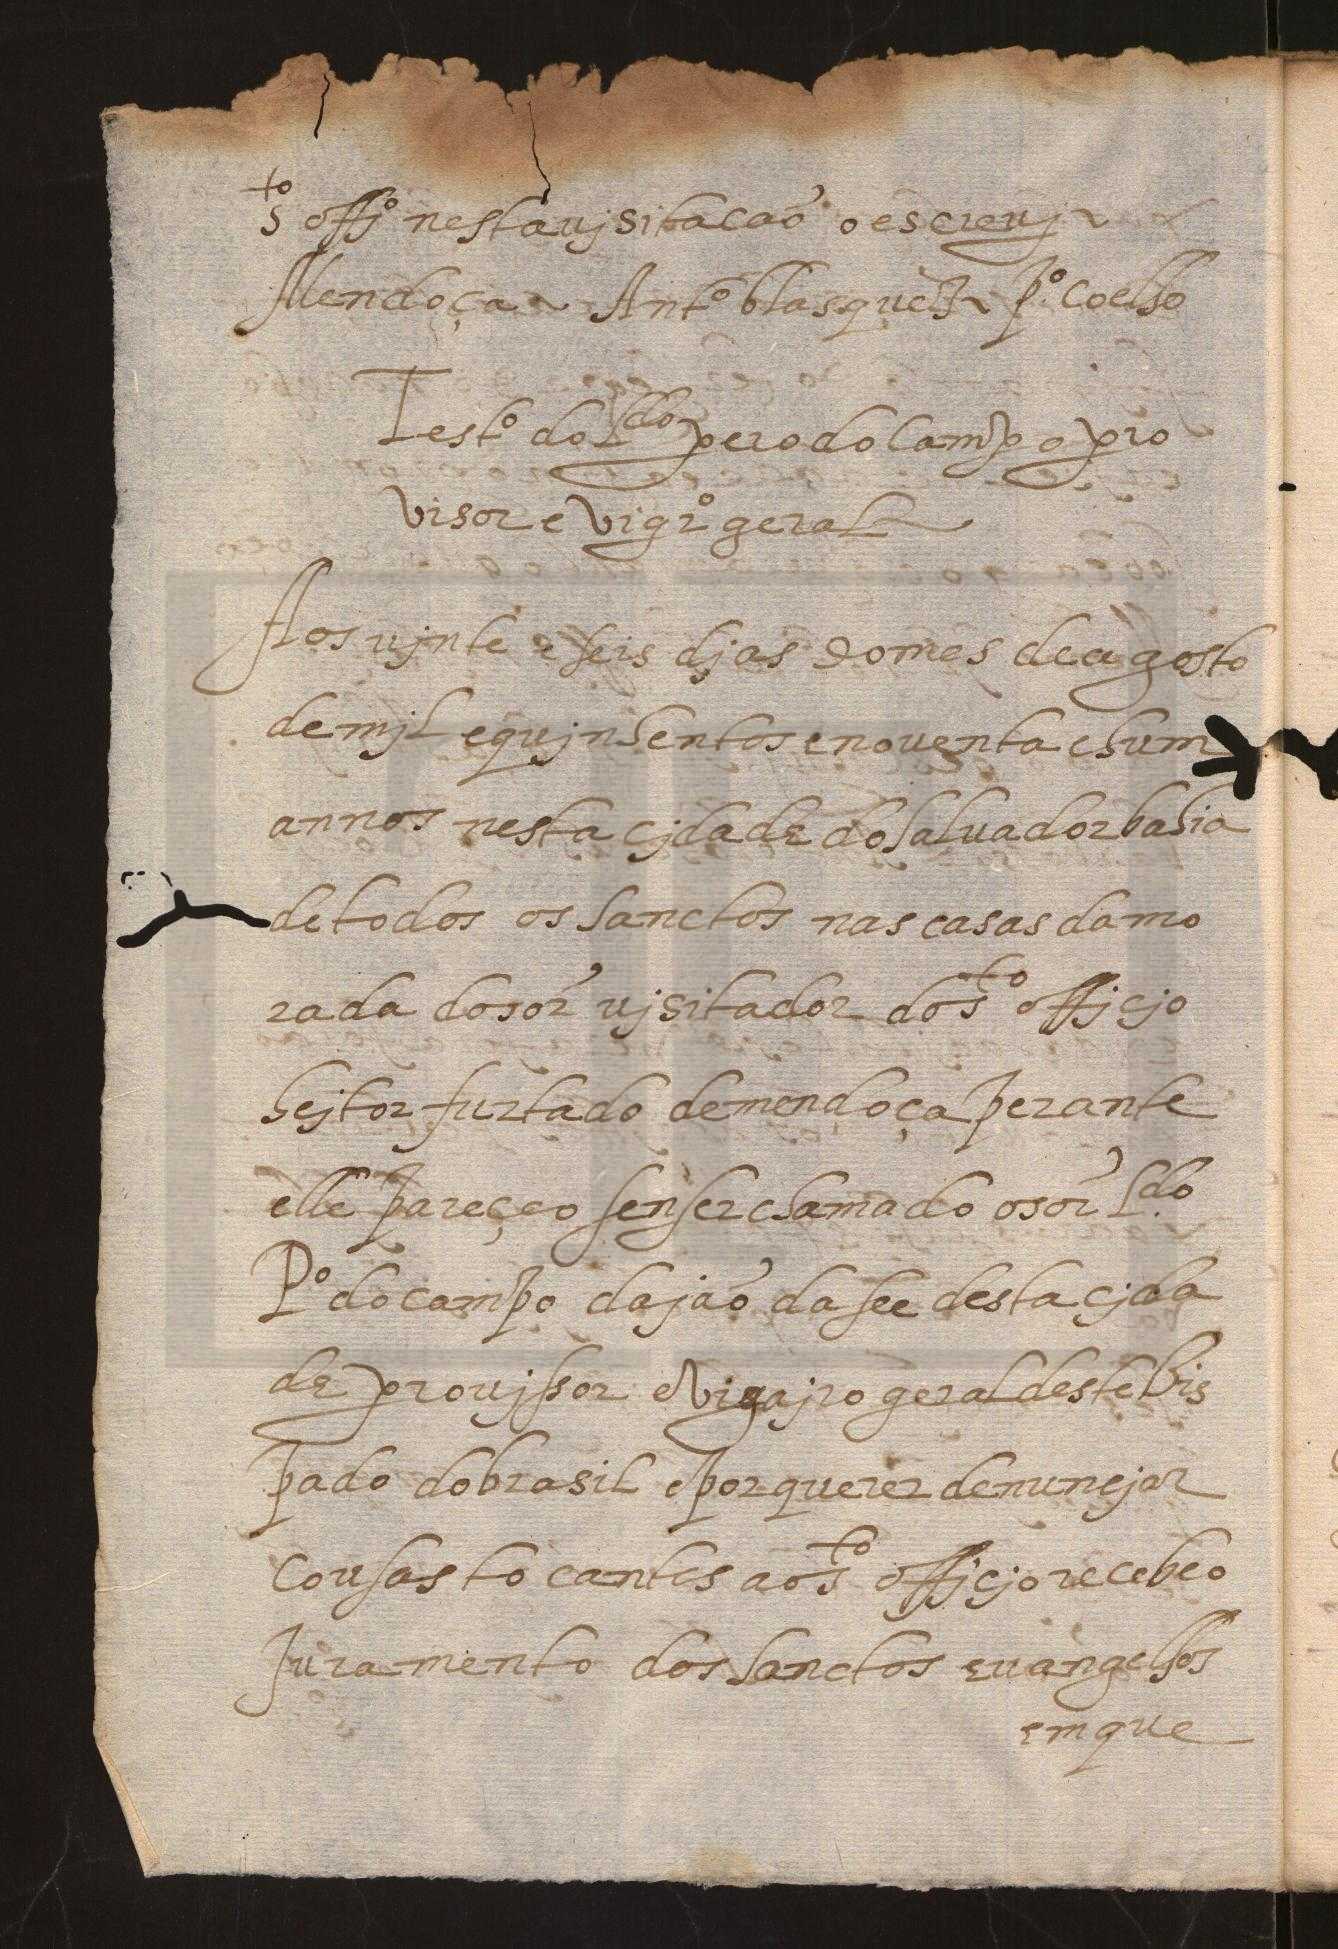 sto offo nesta vjsitacaõ o escrevj
Mendoça Anto blasquez po Coelho
Testo do Ldo pero do Campo pro
visor e vigro geral
Aos vjnte e seis djas do mes de agosto
de mjl e qujnhentos e noventa e hum
annos nesta cjdade do salvador bahia
de todos os sanctos nas casas da mo
rada do sor vjsitador do sto officjo
hejtor furtado de mendoça perante
elle pareçeo sen ser chamado o sor Ldo
Po do campo dajaõ da see desta cjda
de provjssor e vigajro geral deste bis
pado do brasil e por querer denuncjar
cousas tocantes ao sto officjo recebeo
Juramento dos sanctos evangelhos
em que